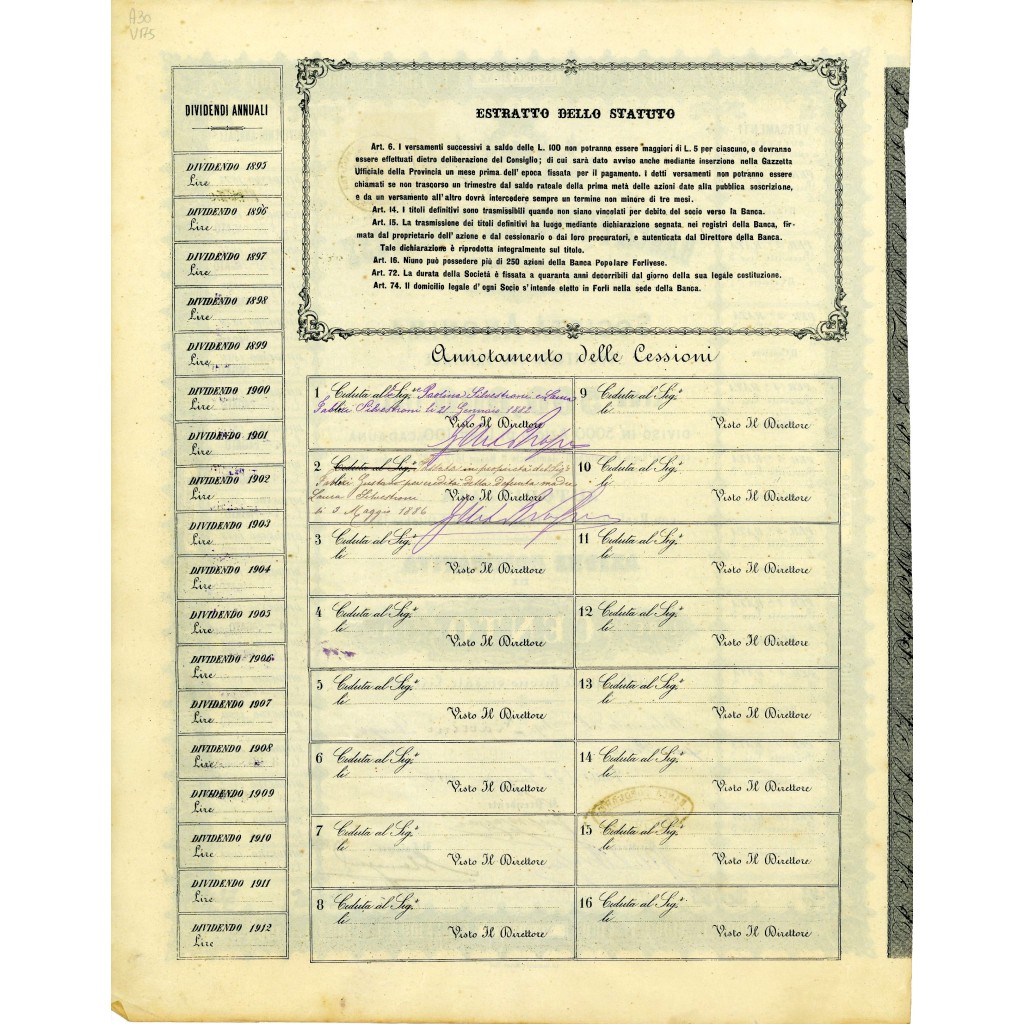 A30
V175
DIVIDENDI ANNUALI
DIVIDENDO 1895
Lire
DIVIDENDO 1896
Lire
DIVIDENDO 1897
Lire
DIVIDENDO 1898
Lire
DIVIDENDO 1899
Lire
DIVIDENDO 1900
Lire
DIVIDENDO 1901
Lire
DIVIDENDO 1902
Lire
DIVIDENDO 1903
Lire
DIVIDENDO 1904
Lire
DIVIDENDO 1905
Lire
DIVIDENDO 1906
Lire
DIVIDENDO 1907
Lire
DIVIDENDO 1908
Lire
DIVIDENDO 1909
Lire
DIVIDENDO 1910
Lire
DIVIDENDO 1911
Lire
DIVIDENDO 1912
Lire
ESTRATTO DELLO STATUTO
Art. 6. I versamenti successivi a saldo delle L. 100 non potranno essere maggiori di L. 5 per ciascuno, e dovranno
essere effettuati dietro deliberazione del Consiglio; di cui sarà dato avviso anche mediante inserzione nella Gazzetta
Ufficiale della Provincia un mese prima dell'epoca fissata per il pagamento. I detti versamenti non potranno essere
chiamati se non trascorso un trimestre dal saldo rateale della prima metà delle azioni date alla pubblica soscrizione,
e da un versamento all'altro dovrà intercedere sempre un termine non minore di tre mesi.
Art. 14. I titoli definitivi sono trasmissibili quando non siano vincolati per debito del socio verso la Banca.
Art. 15. La trasmissione dei titoli definitivi ha luogo mediante dichiarazione segnata, nei registri della Banca, fir-
mata dal proprietario dell'azione e dal cessionario o dai loro procuratori, e autenticata dal Direttore della Banca.
Tale dichiarazione è riprodotta integralmente sul titolo.
Art. 16. Niuno può possedere più di 250 azioni della Banca Popolare Forlivese.
Art. 72. La durata della Società è fissata a quaranta anni decorribili dal giorno della sua legale costituzione.
Art. 74. Il domicilio legale d'ogni Socio s'intende eletto in Forlì nella sede della Banca.
Annotamento delle Cessioni
1 Ceduta al Sig. Paolina Silvestroni e Laura
Silvestroni li 21 Gennaio 1882
Visto Il Direttore
2 Ceduta al Sig. in proprietà del Sig.
Gustavo per eredità della defunta madre
Laura Silvestroni
Visto Il Direttore
li 3 Maggio 1886
3 Ceduta al Sig.r
li
Visto Il Direttore
4 Ceduta al Sig.r
li
Visto Il Direttore
5 Ceduta al Sig.r
li
Visto Il Direttore
6 Ceduta al Sig.r
li
Visto Il Direttore
7 Ceduta al Sig.r
li
Visto Il Direttore
8 Ceduta al Sig.r
li
Visto Il Direttore
9 Ceduta al Sig.r
li
Visto Il Direttore
10 Ceduta al Sig.r
li
Visto Il Direttore
11 Ceduta al Sig.r
li
Visto Il Direttore
12 Ceduta al Sig.r
li
Visto Il Direttore
13 Ceduta al Sig.r
li
Visto Il Direttore
14 Ceduta al Sig.r
li
Visto Il Direttore
15 Ceduta al Sig.r
li
Visto Il Direttore
16 Ceduta al Sig.r
li
Visto Il Direttore